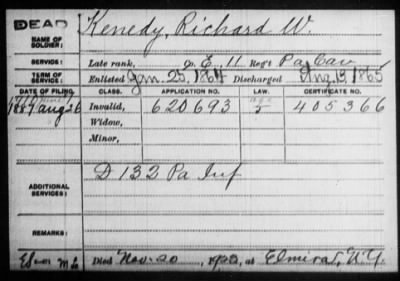 DEAD
NAME OF SOLDIER: Kenedy, Richard W.
SERVICE: Late rank, Co. E, 11 Reg't Pa Cav
TERM OF SERVICE: Enlisted Jan. 25, 1864 Discharged Aug 13, 1865
DATE OF FILING. CLASS. APPLICATION NO. LAW. CERTIFICATE NO.
1887 Aug 26 Invalid, 620693 405366
Widow,
Minor,
ADDITIONAL SERVICES: D 132 Pa Inf
REMARKS:
Died Nov. 20, at Elmira, N.Y.